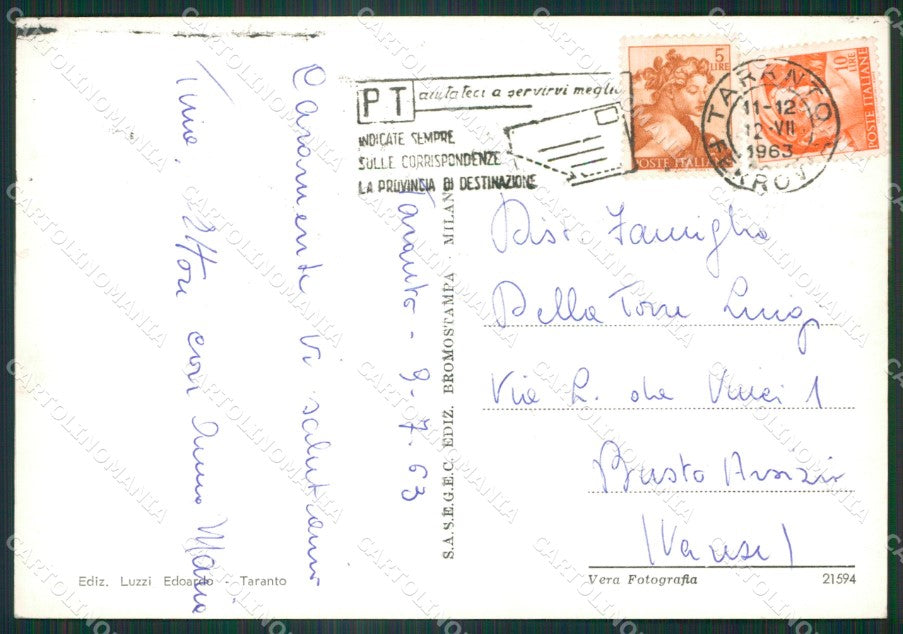 Taranto - 9-7-63
Caramente Vi salutiamo
Tina, Ettore con Anna Maria
PT aiutateci a servirvi meglio
INDICATE SEMPRE
SULLE CORRISPONDENZE
LA PROVINCIA DI DESTINAZIONE
5 LIRE
POSTE ITALIANE
10 LIRE
POSTE ITALIANE
TARANTO FERROVIA
11-12
12-VII
1963
Dist. Famiglia
Della Torre Luigi
Via L. da Vinci 1
Busto Arsizio
(Varese)
S.A.S.E.G.E.C. EDIZ. BROMOSTAMPA - MILANO
Ediz. Luzzi Edoardo - Taranto
Vera Fotografia
21594
CARTOLINOMANIA